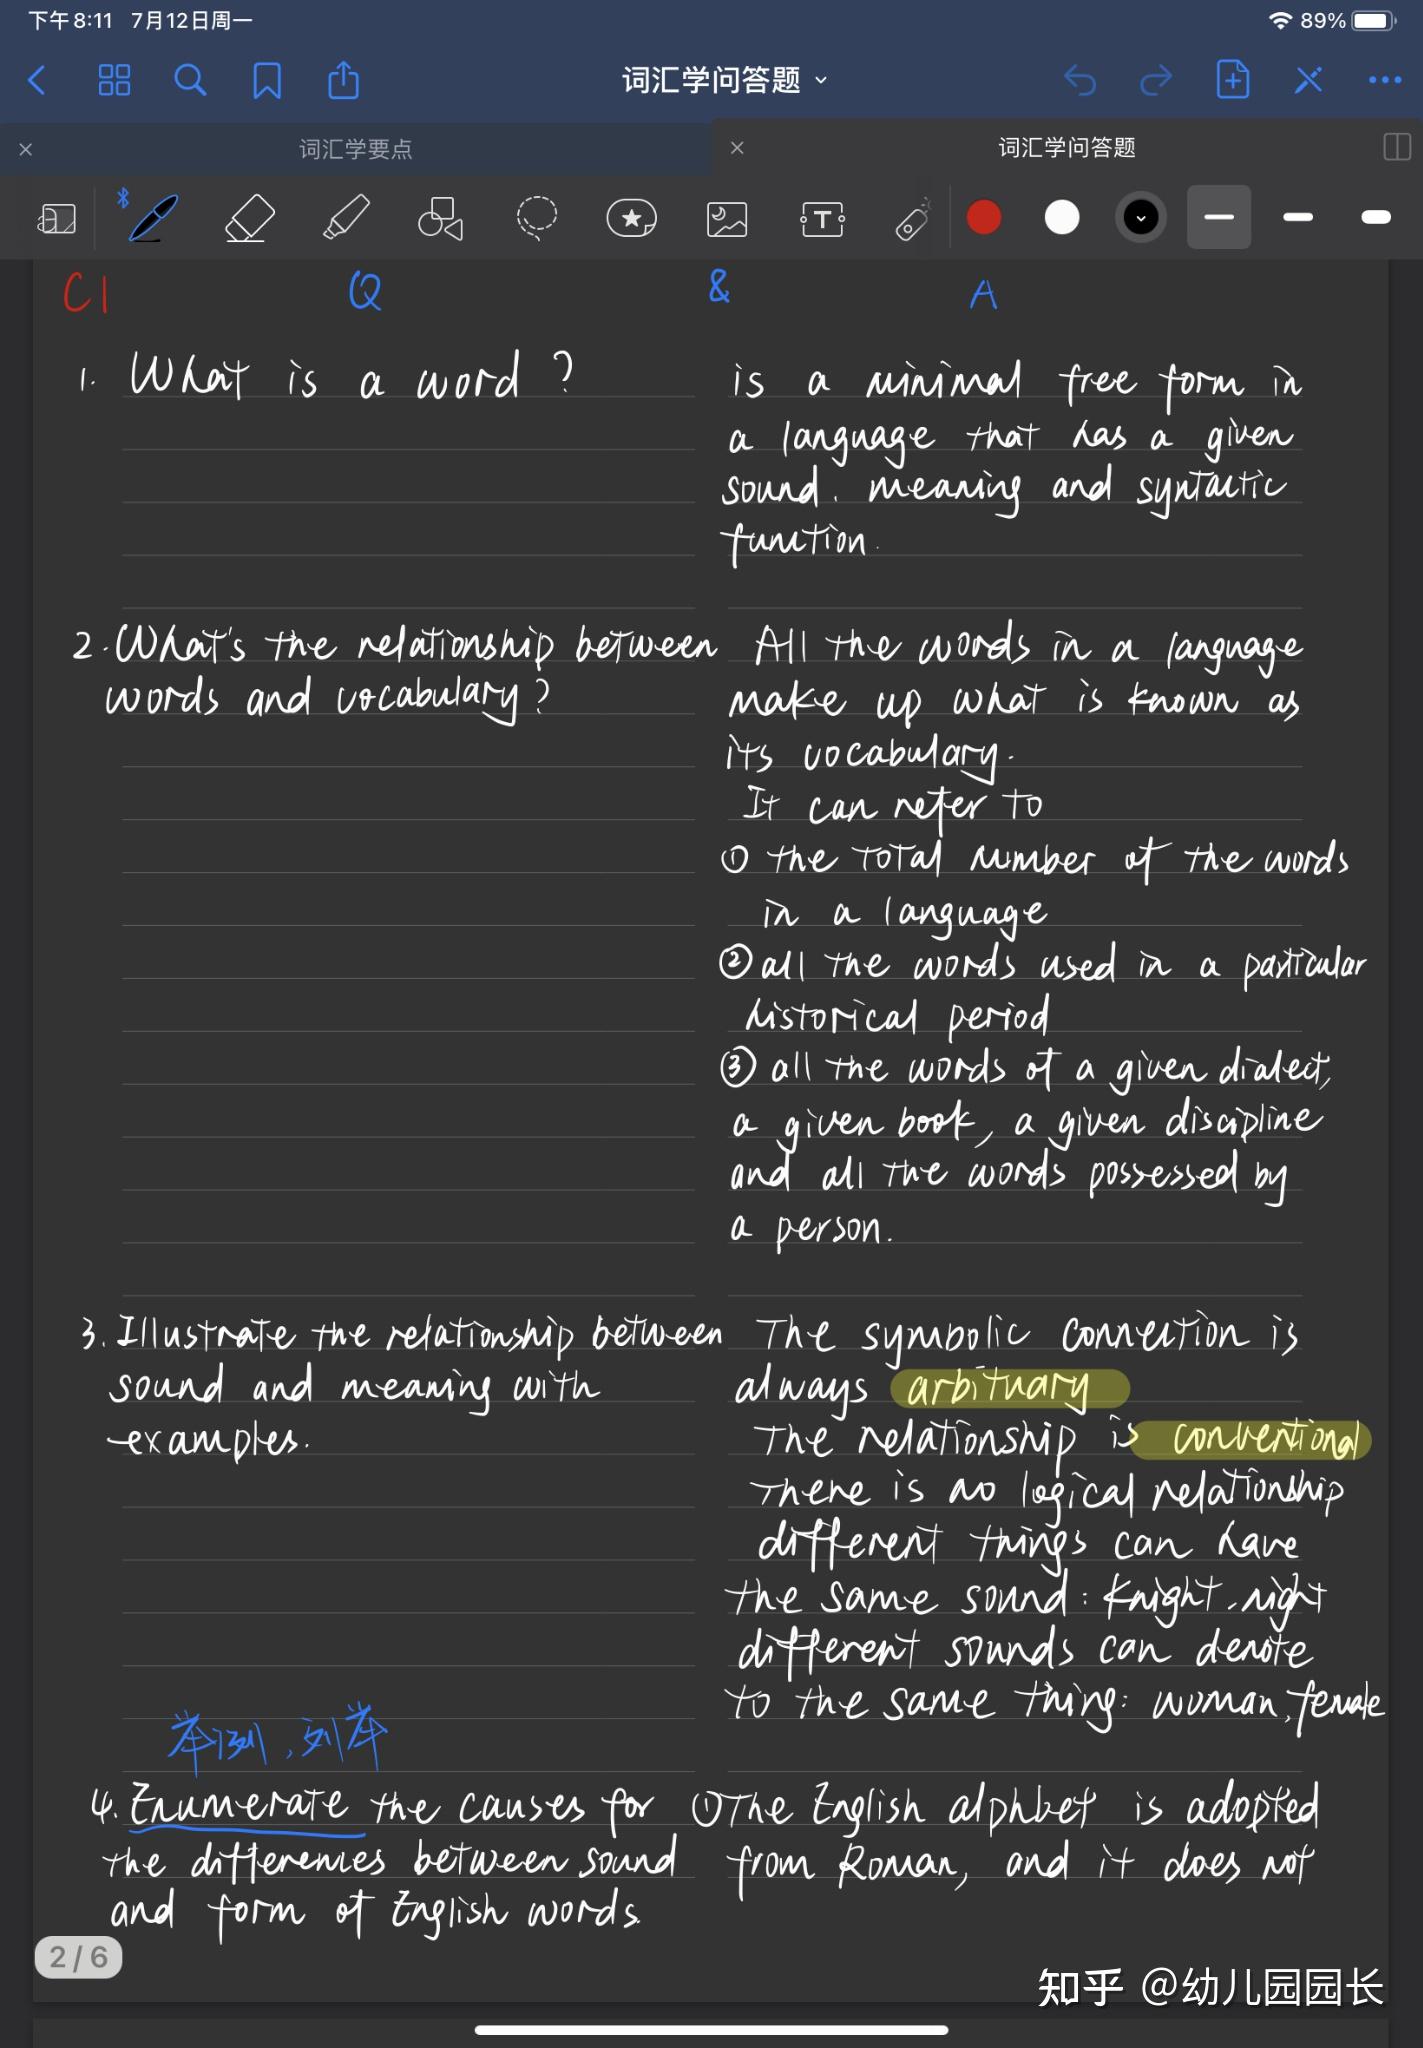 下午8:11 7月12日周一
89%
词汇学问答题
词汇学要点
词汇学问答题
C1 Q & A
1. What is a word?
is a minimal free form in
a language that has a given
sound. meaning and syntactic
function.
2. What's the relationship between
words and vocabulary?
All the words in a language
make up what is known as
its vocabulary.
It can refer to
① the total number of the words
in a language
② all the words used in a particular
historical period
③ all the words of a given dialect,
a given book, a given discipline
and all the words possessed by
a person.
3. Illustrate the relationship between
sound and meaning with
examples.
The symbolic connection is
always arbituary
The relationship is conventional
There is no logical relationship
different things can have
the same sound: knight, night
different sounds can denote
to the same thing: woman, female
举例,列举
4. Enumerate the causes for
the differences between sound
and form of English words.
① The English alphbet is adopted
from Roman, and it does not
2/6
知乎 @幼儿园园长